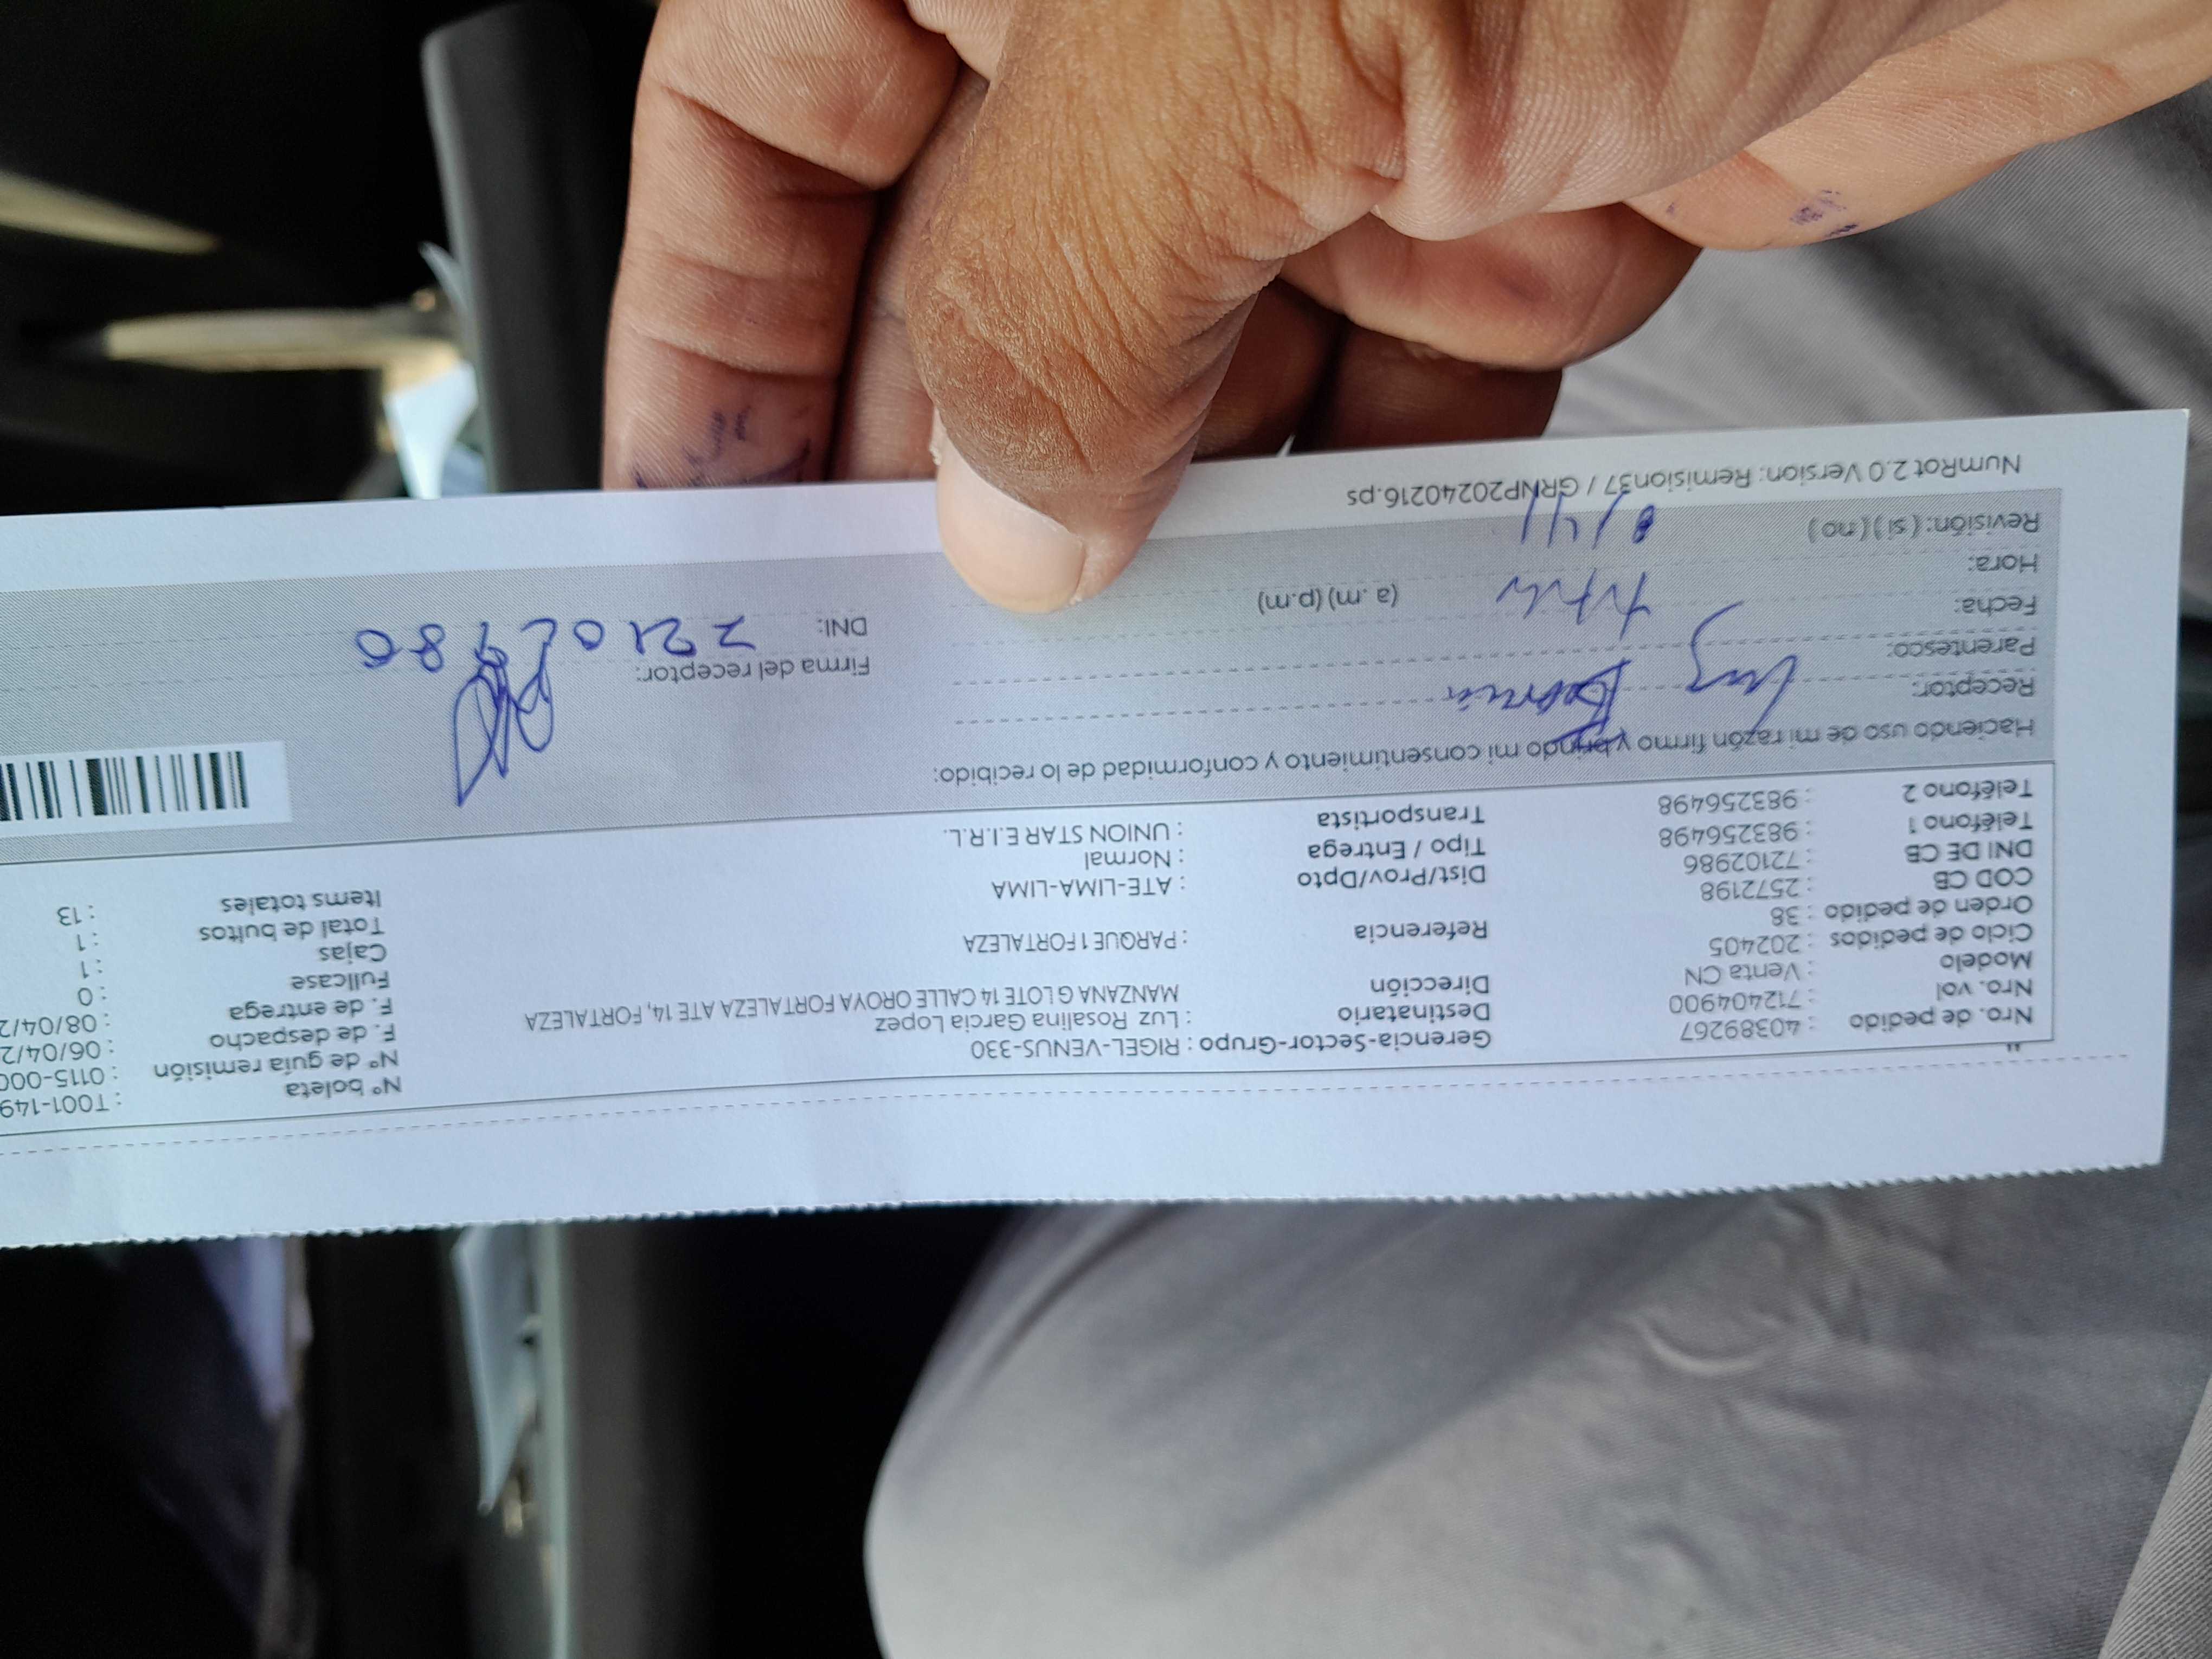 Nro. de pedido : 40389267 Gerencia-Sector-Grupo : RIGEL-VENUS-330 N° boleta : T001-149
Nro. vol : 712404900 Destinatario : Luz Rosalina Garcia Lopez N° de guía remisión : 0115-000
Modelo : Venta CN Dirección MANZANA G LOTE 14 CALLE OROYA FORTALEZA ATE 14, FORTALEZA F. de despacho : 06/04/2
Ciclo de pedidos : 202405 F. de entrega : 08/04/2
Orden de pedido : 38 Referencia : PARQUE 1 FORTALEZA Fullcase : 0
COD CB : 2572198 Cajas : 1
DNI DE CB : 72102986 Dist/Prov/Dpto : ATE-LIMA-LIMA Total de bultos : 1
Teléfono 1 : 983256498 Tipo / Entrega : Normal Items totales : 13
Teléfono 2 : 983256498 Transportista : UNION STAR E.I.R.L.
Haciendo uso de mi razón firmo y brindo mi consentimiento y conformidad de lo recibido:
Receptor: Luz
Parentesco: Firma del receptor:
Fecha: DNI:
Hora: (a .m) (p.m)
Revisión: ( si ) ( no )
NumRot 2.0 Version: Remision37 / GRNP20240216.ps